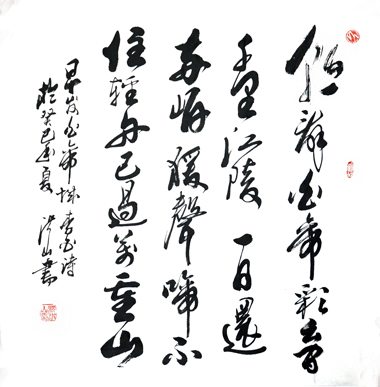 朝辞白帝彩云间
千里江陵一日還
两岸猿聲啼不
住輕舟已過萬重山
早发白帝城 李白诗
於癸巳年夏 山書